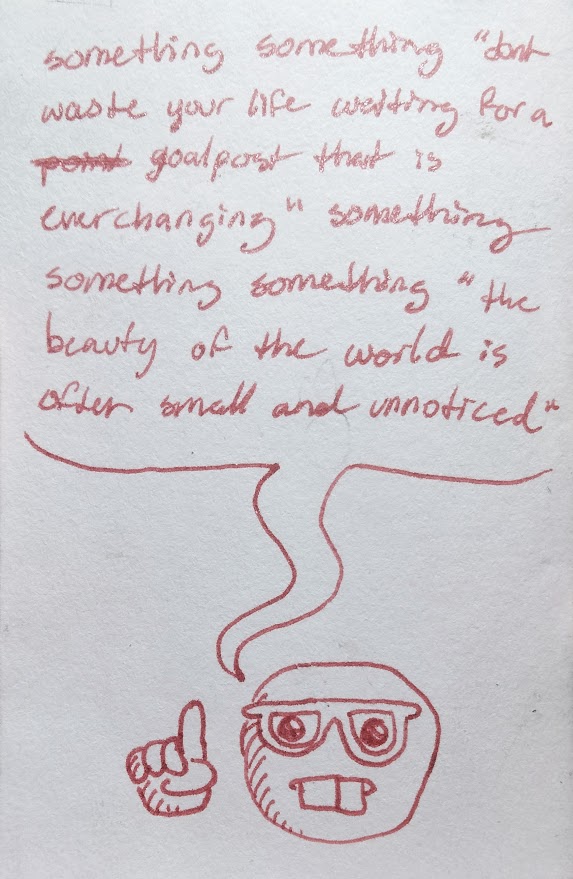 something something "dont
waste your life waiting for a
point goalpost that is
everchanging" something
something something "the
beauty of the world is
often small and unnoticed"